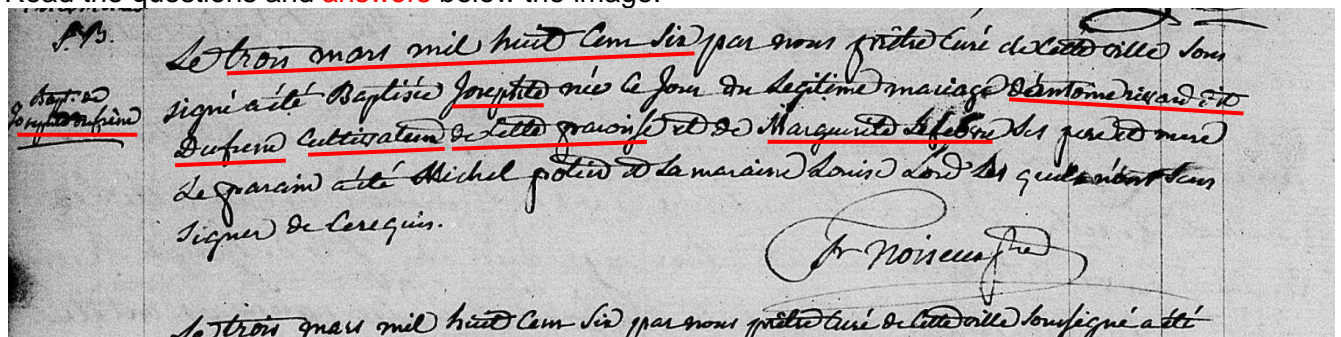 Read the questions and answers below the image.
J.B.
Le trois mars mil huit Cem Six par nous prêtre Curé de Cette ville Sous
Bapt. de
signé a été Baptisée Josephte née le Jour du Legitime mariage d'Antoine rissard dit
Josephte dufrêne
Dufrene Cultivateur de Cette paroisse et de Marguerite Lefebvre Ses pere et mere
Le parain a été Michel potier et La maraine Louise Lord Les quels n'ont Scus
signer de Cerequis.
Fr Noiseux Ptre
Le trois mars mil huit Cem Six par nous prêtre Curé de Cette ville Sousigné a été